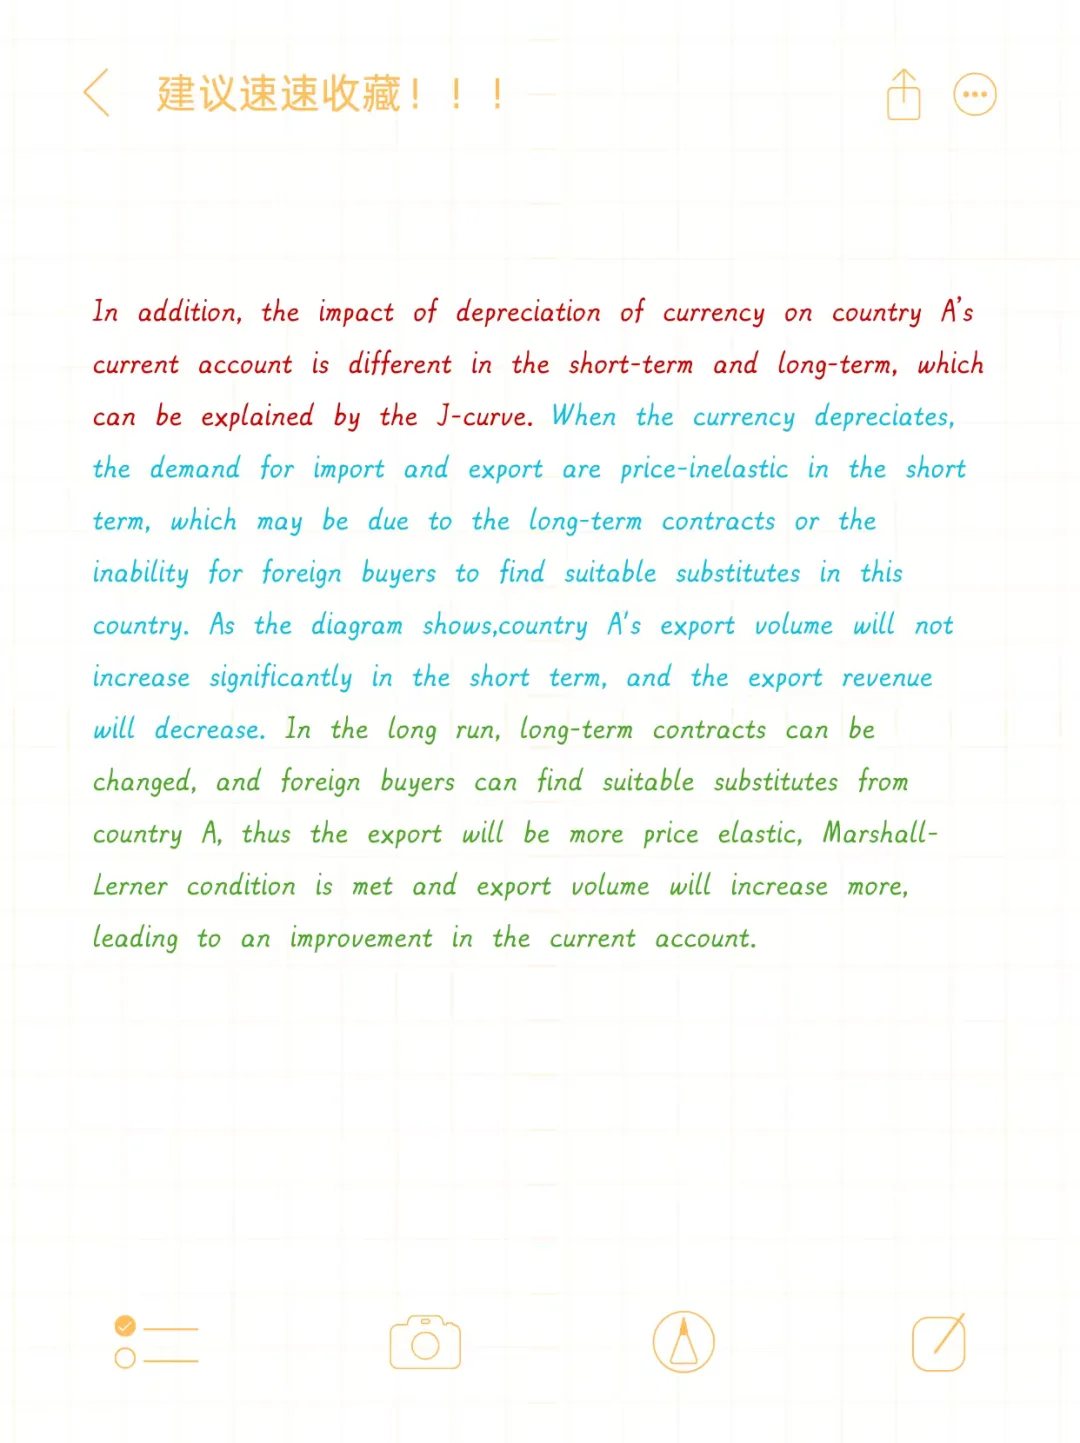 建议速速收藏！！！
In addition, the impact of depreciation of currency on country A's
current account is different in the short-term and long-term, which
can be explained by the J-curve. When the currency depreciates,
the demand for import and export are price-inelastic in the short
term, which may be due to the long-term contracts or the
inability for foreign buyers to find suitable substitutes in this
country. As the diagram shows,country A's export volume will not
increase significantly in the short term, and the export revenue
will decrease. In the long run, long-term contracts can be
changed, and foreign buyers can find suitable substitutes from
country A, thus the export will be more price elastic, Marshall-
Lerner condition is met and export volume will increase more,
leading to an improvement in the current account.